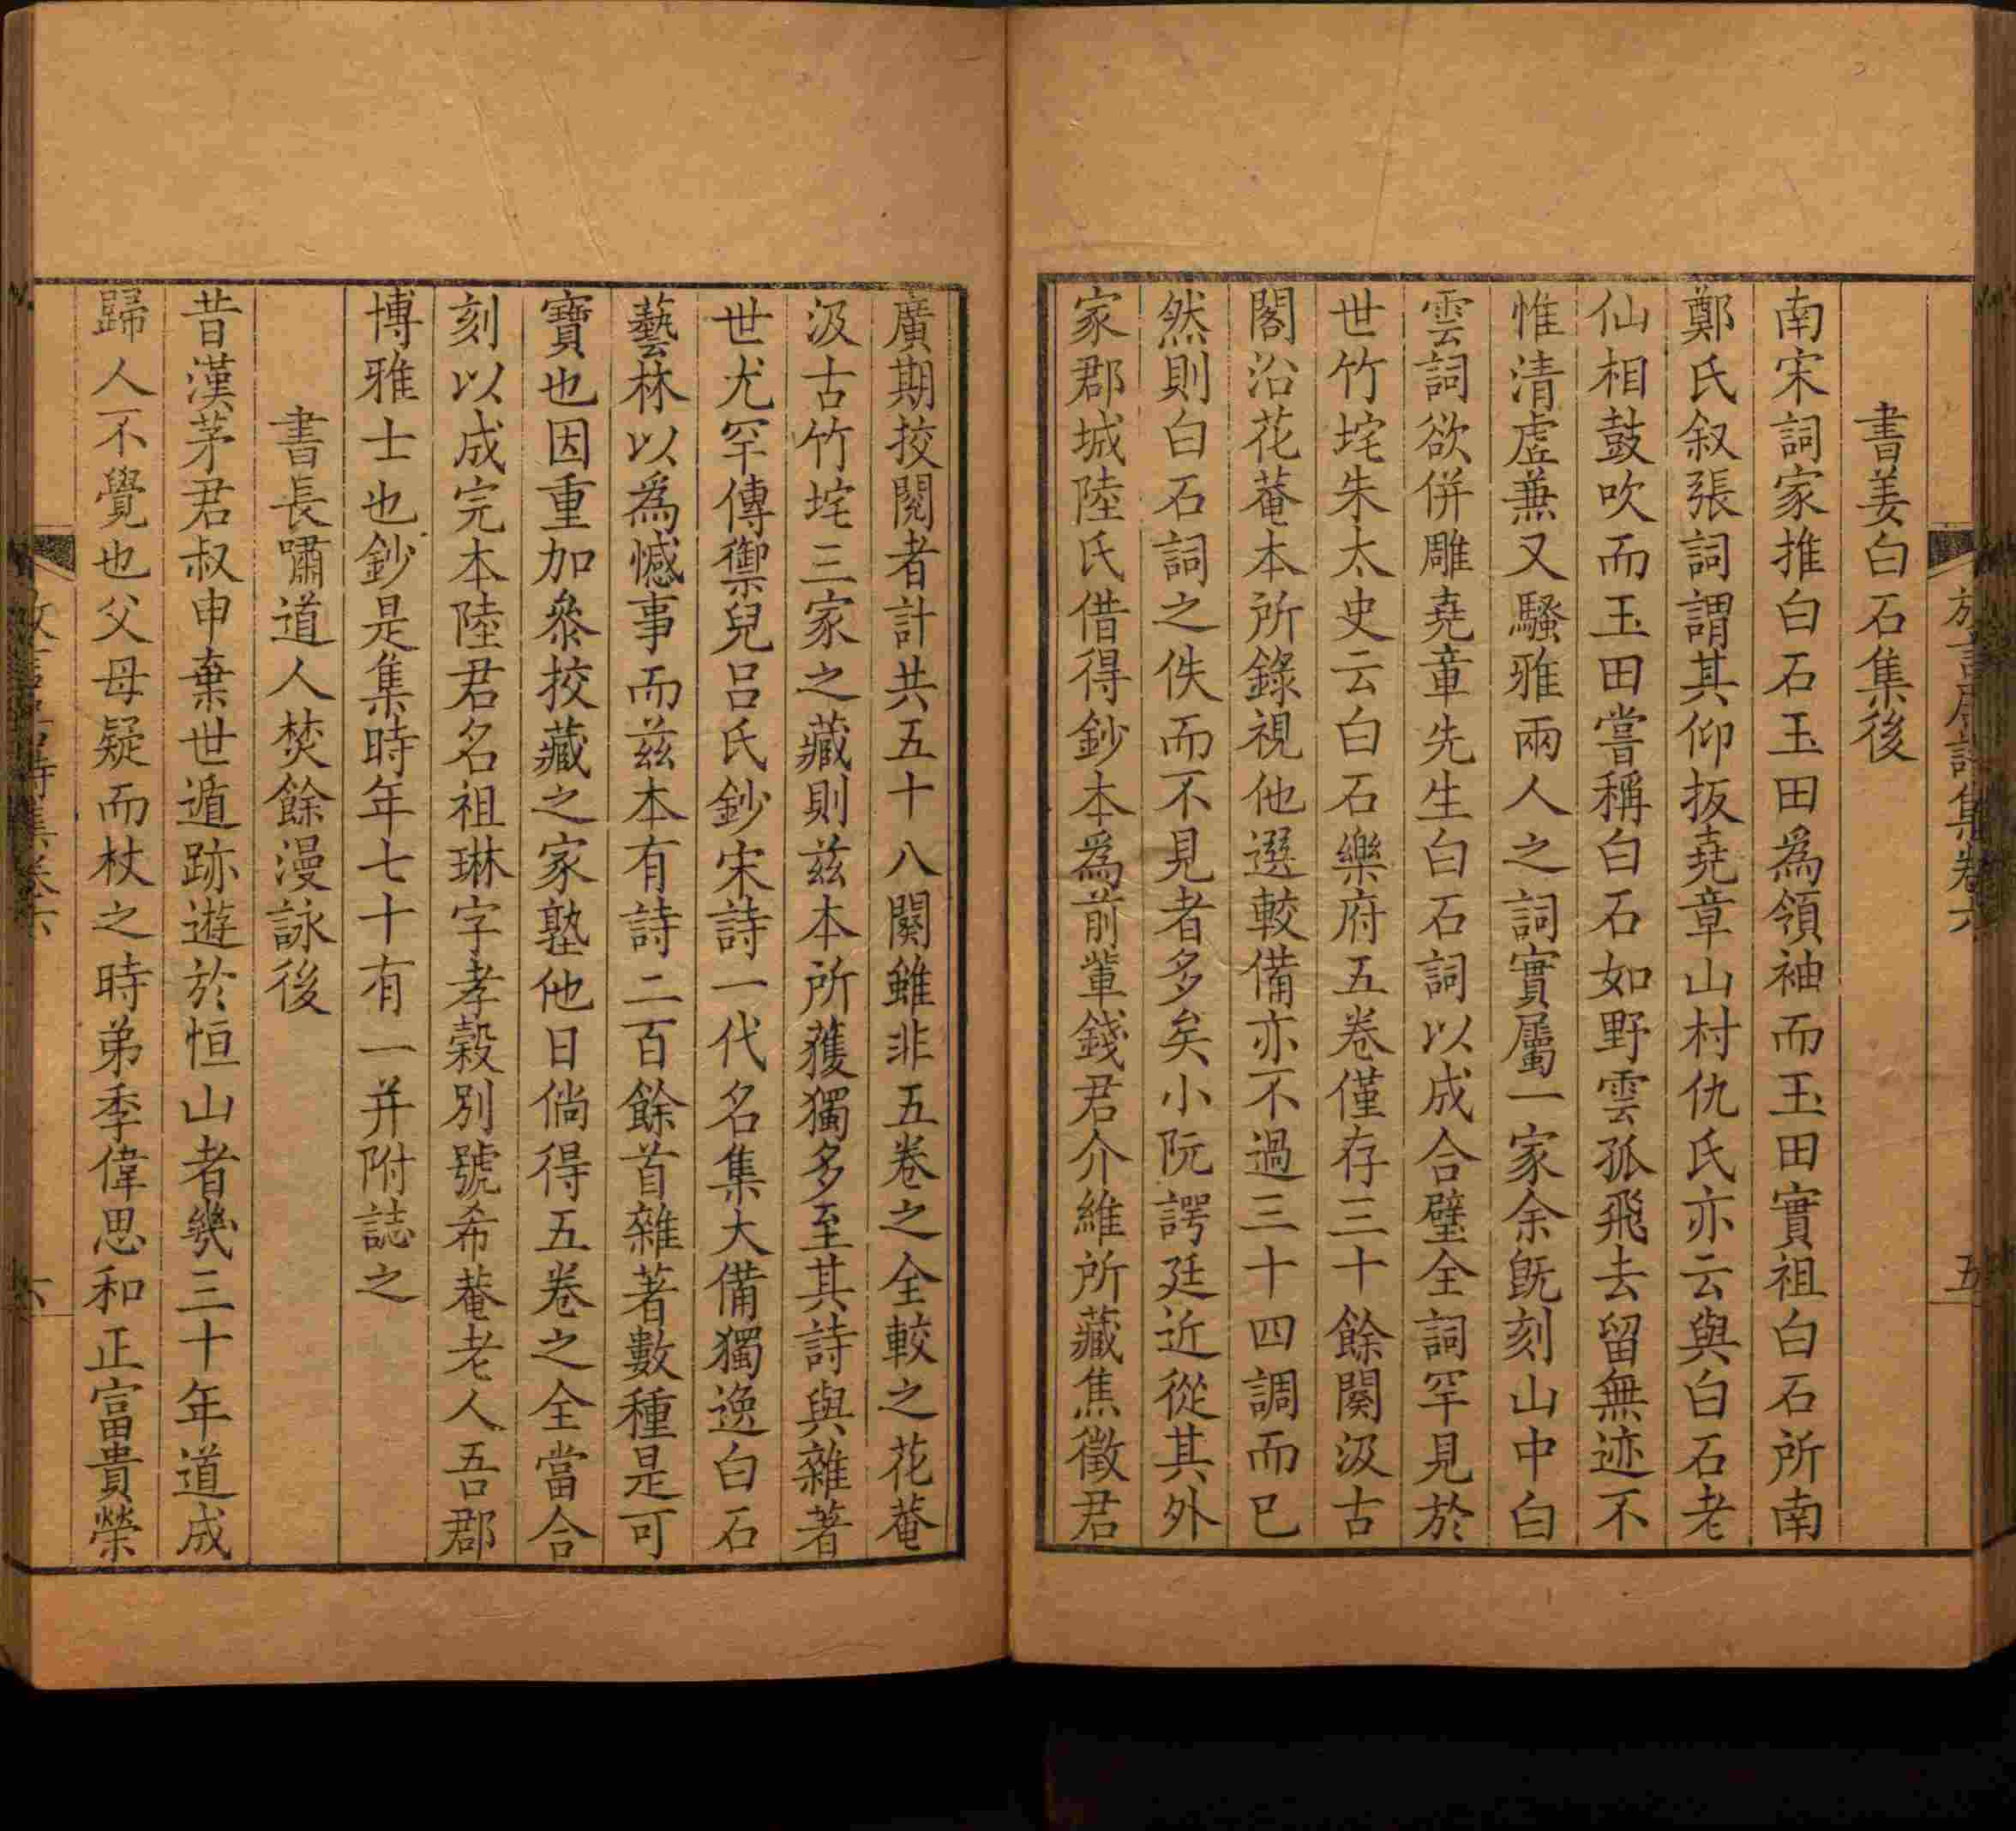 書姜白石集後
南宋詞家推白石玉田爲領袖而玉田實祖白石所南
鄭氏叙張詞謂其仰扳堯章山村仇氏亦云與白石老
仙相鼓吹而玉田嘗稱白石如野雲孤飛去留無迹不
惟清虛兼又騷雅兩人之詞實屬一家余旣刻山中白
雲詞欲併雕堯章先生白石詞以成合璧全詞罕見於
世竹垞朱太史云白石樂府五卷僅存三十餘闋汲古
閣沿花菴本所錄視他選較備亦不過三十四調而已
然則白石詞之佚而不見者多矣小阮諤廷近從其外
家郡城陸氏借得鈔本爲前輩錢君介維所藏焦徵君
五
廣期挍閱者計共五十八闋雖非五卷之全較之花菴
汲古竹垞三家之藏則兹本所獲獨多至其詩與雜著
世尤罕傳禦兒呂氏鈔宋詩一代名集大備獨逸白石
藝林以爲憾事而兹本有詩二百餘首雜著數種是可
寶也因重加叅挍藏之家塾他日倘得五卷之全當合
刻以成完本陸君名祖琳字孝穀別號希菴老人吾郡
博雅士也鈔是集時年七十有一并附誌之
書長嘯道人焚餘漫詠後
昔漢茅君叔申棄世遁跡遊於恒山者幾三十年道成
歸人不覺也父母疑而杖之時弟季偉思和正富貴榮
六